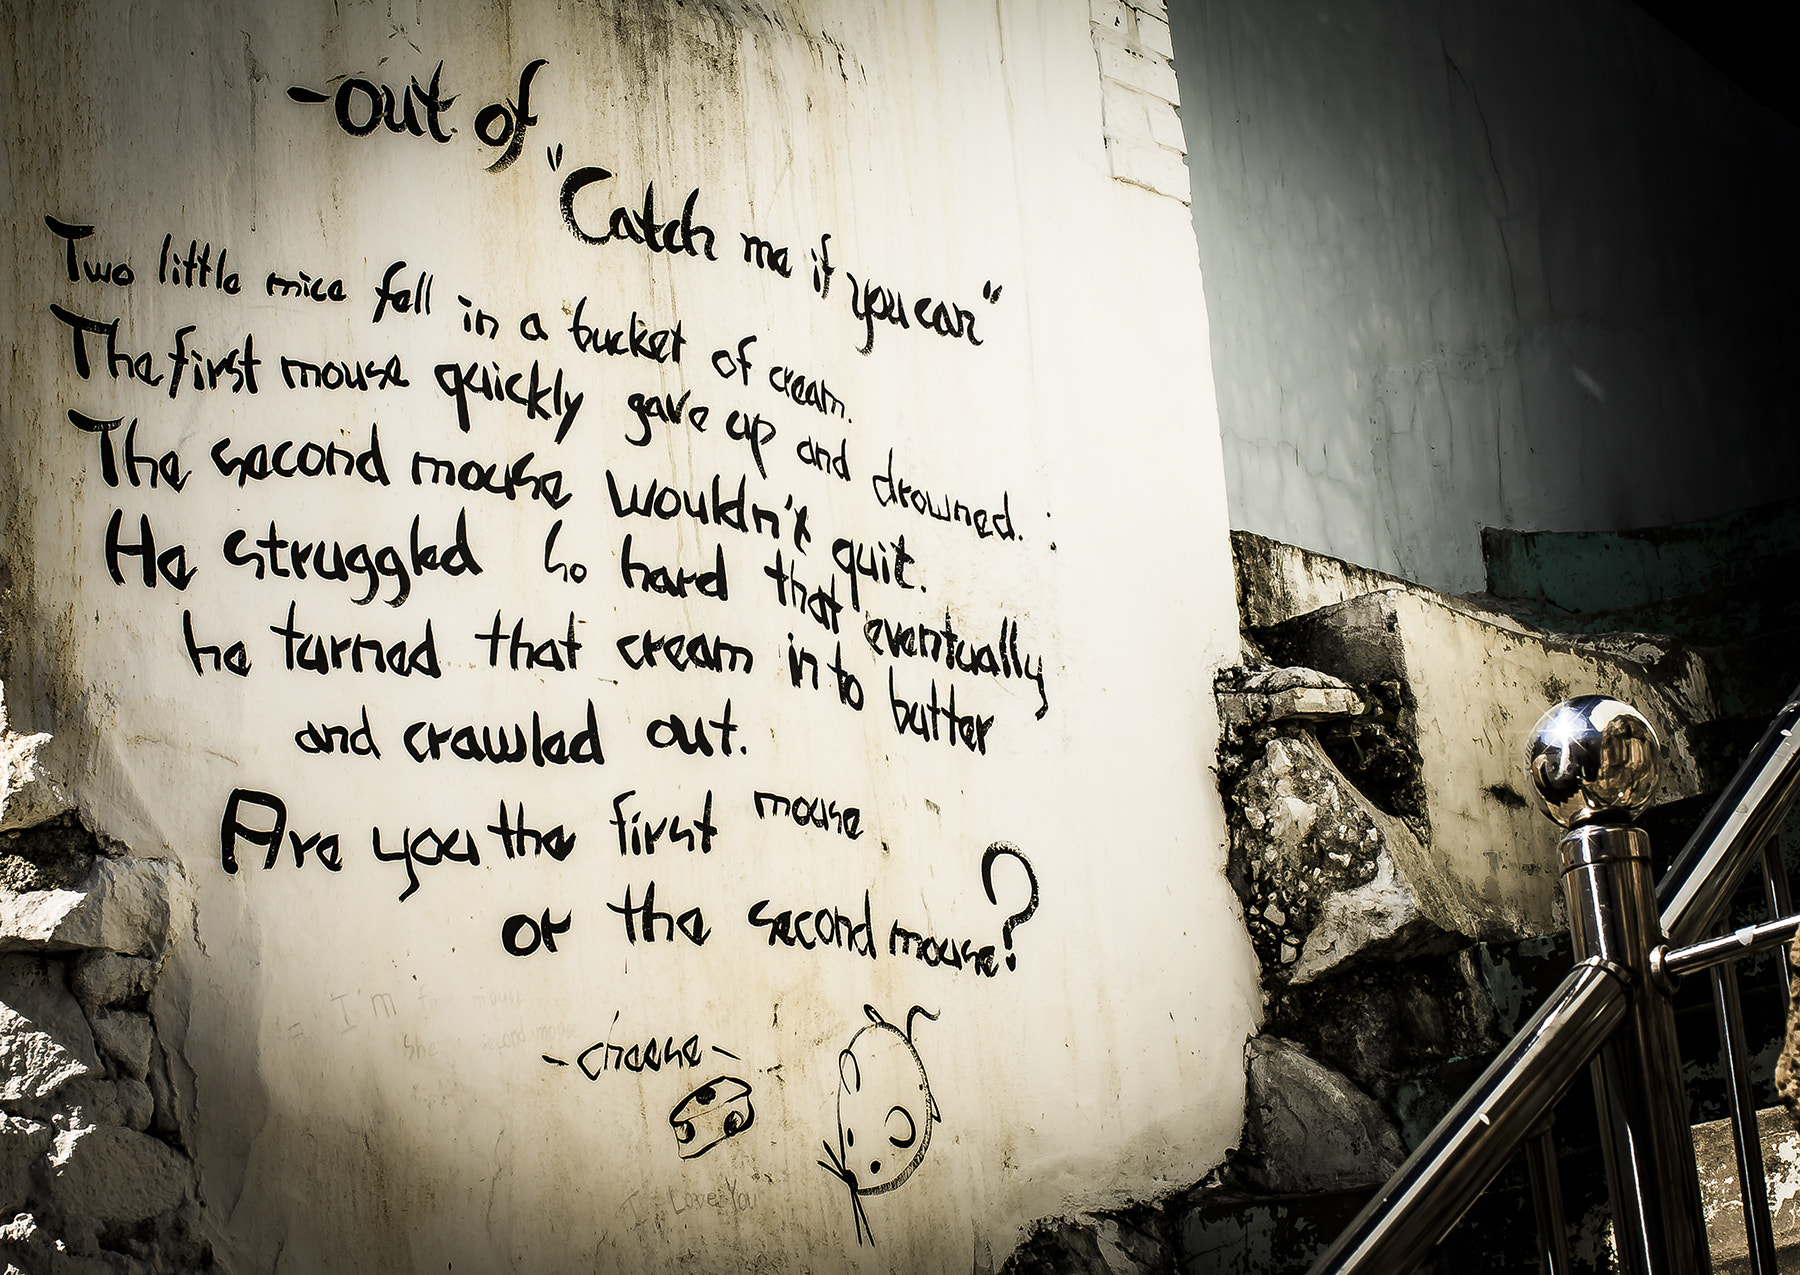 -out of
"Catch me if you can"
Two little mice fell in a bucket of cream.
The first mouse quickly gave up and drowned.
The second mouse wouldn't quit.
He struggled so hard that eventually
he turned that cream in to butter
and crawled out.
Are you the first mouse
or the second mouse?
I'm first mouse
She second mouse
-cheese-
I Love You